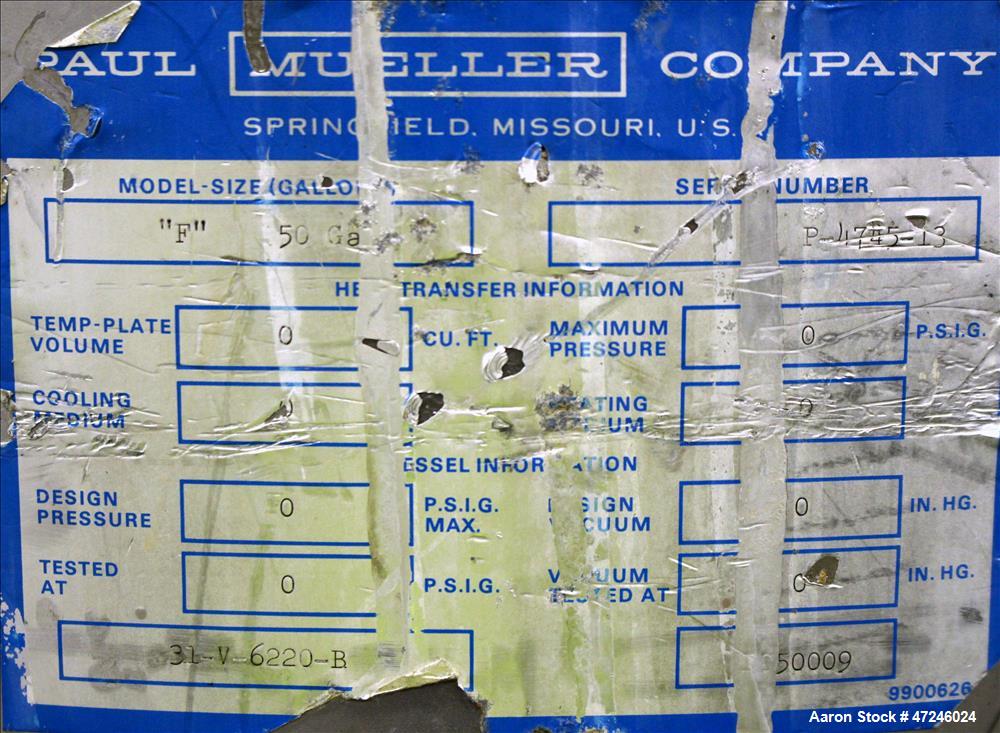 PAUL MUELLER COMPANY
SPRINGFIELD, MISSOURI, U.S.
MODEL-SIZE (GALLONS) SERIAL NUMBER
"F" 50 Ga P-4745-13
HEAT TRANSFER INFORMATION
TEMP-PLATE VOLUME 0 CU. FT. MAXIMUM PRESSURE 0 P.S.I.G.
COOLING MEDIUM 0 HEATING MEDIUM 0
VESSEL INFORMATION
DESIGN PRESSURE 0 P.S.I.G. MAX. DESIGN VACUUM 0 IN. HG.
TESTED AT 0 P.S.I.G. VACUUM TESTED AT 0 IN. HG.
31-V-6220-B 50009
9900626
Aaron Stock # 47246024